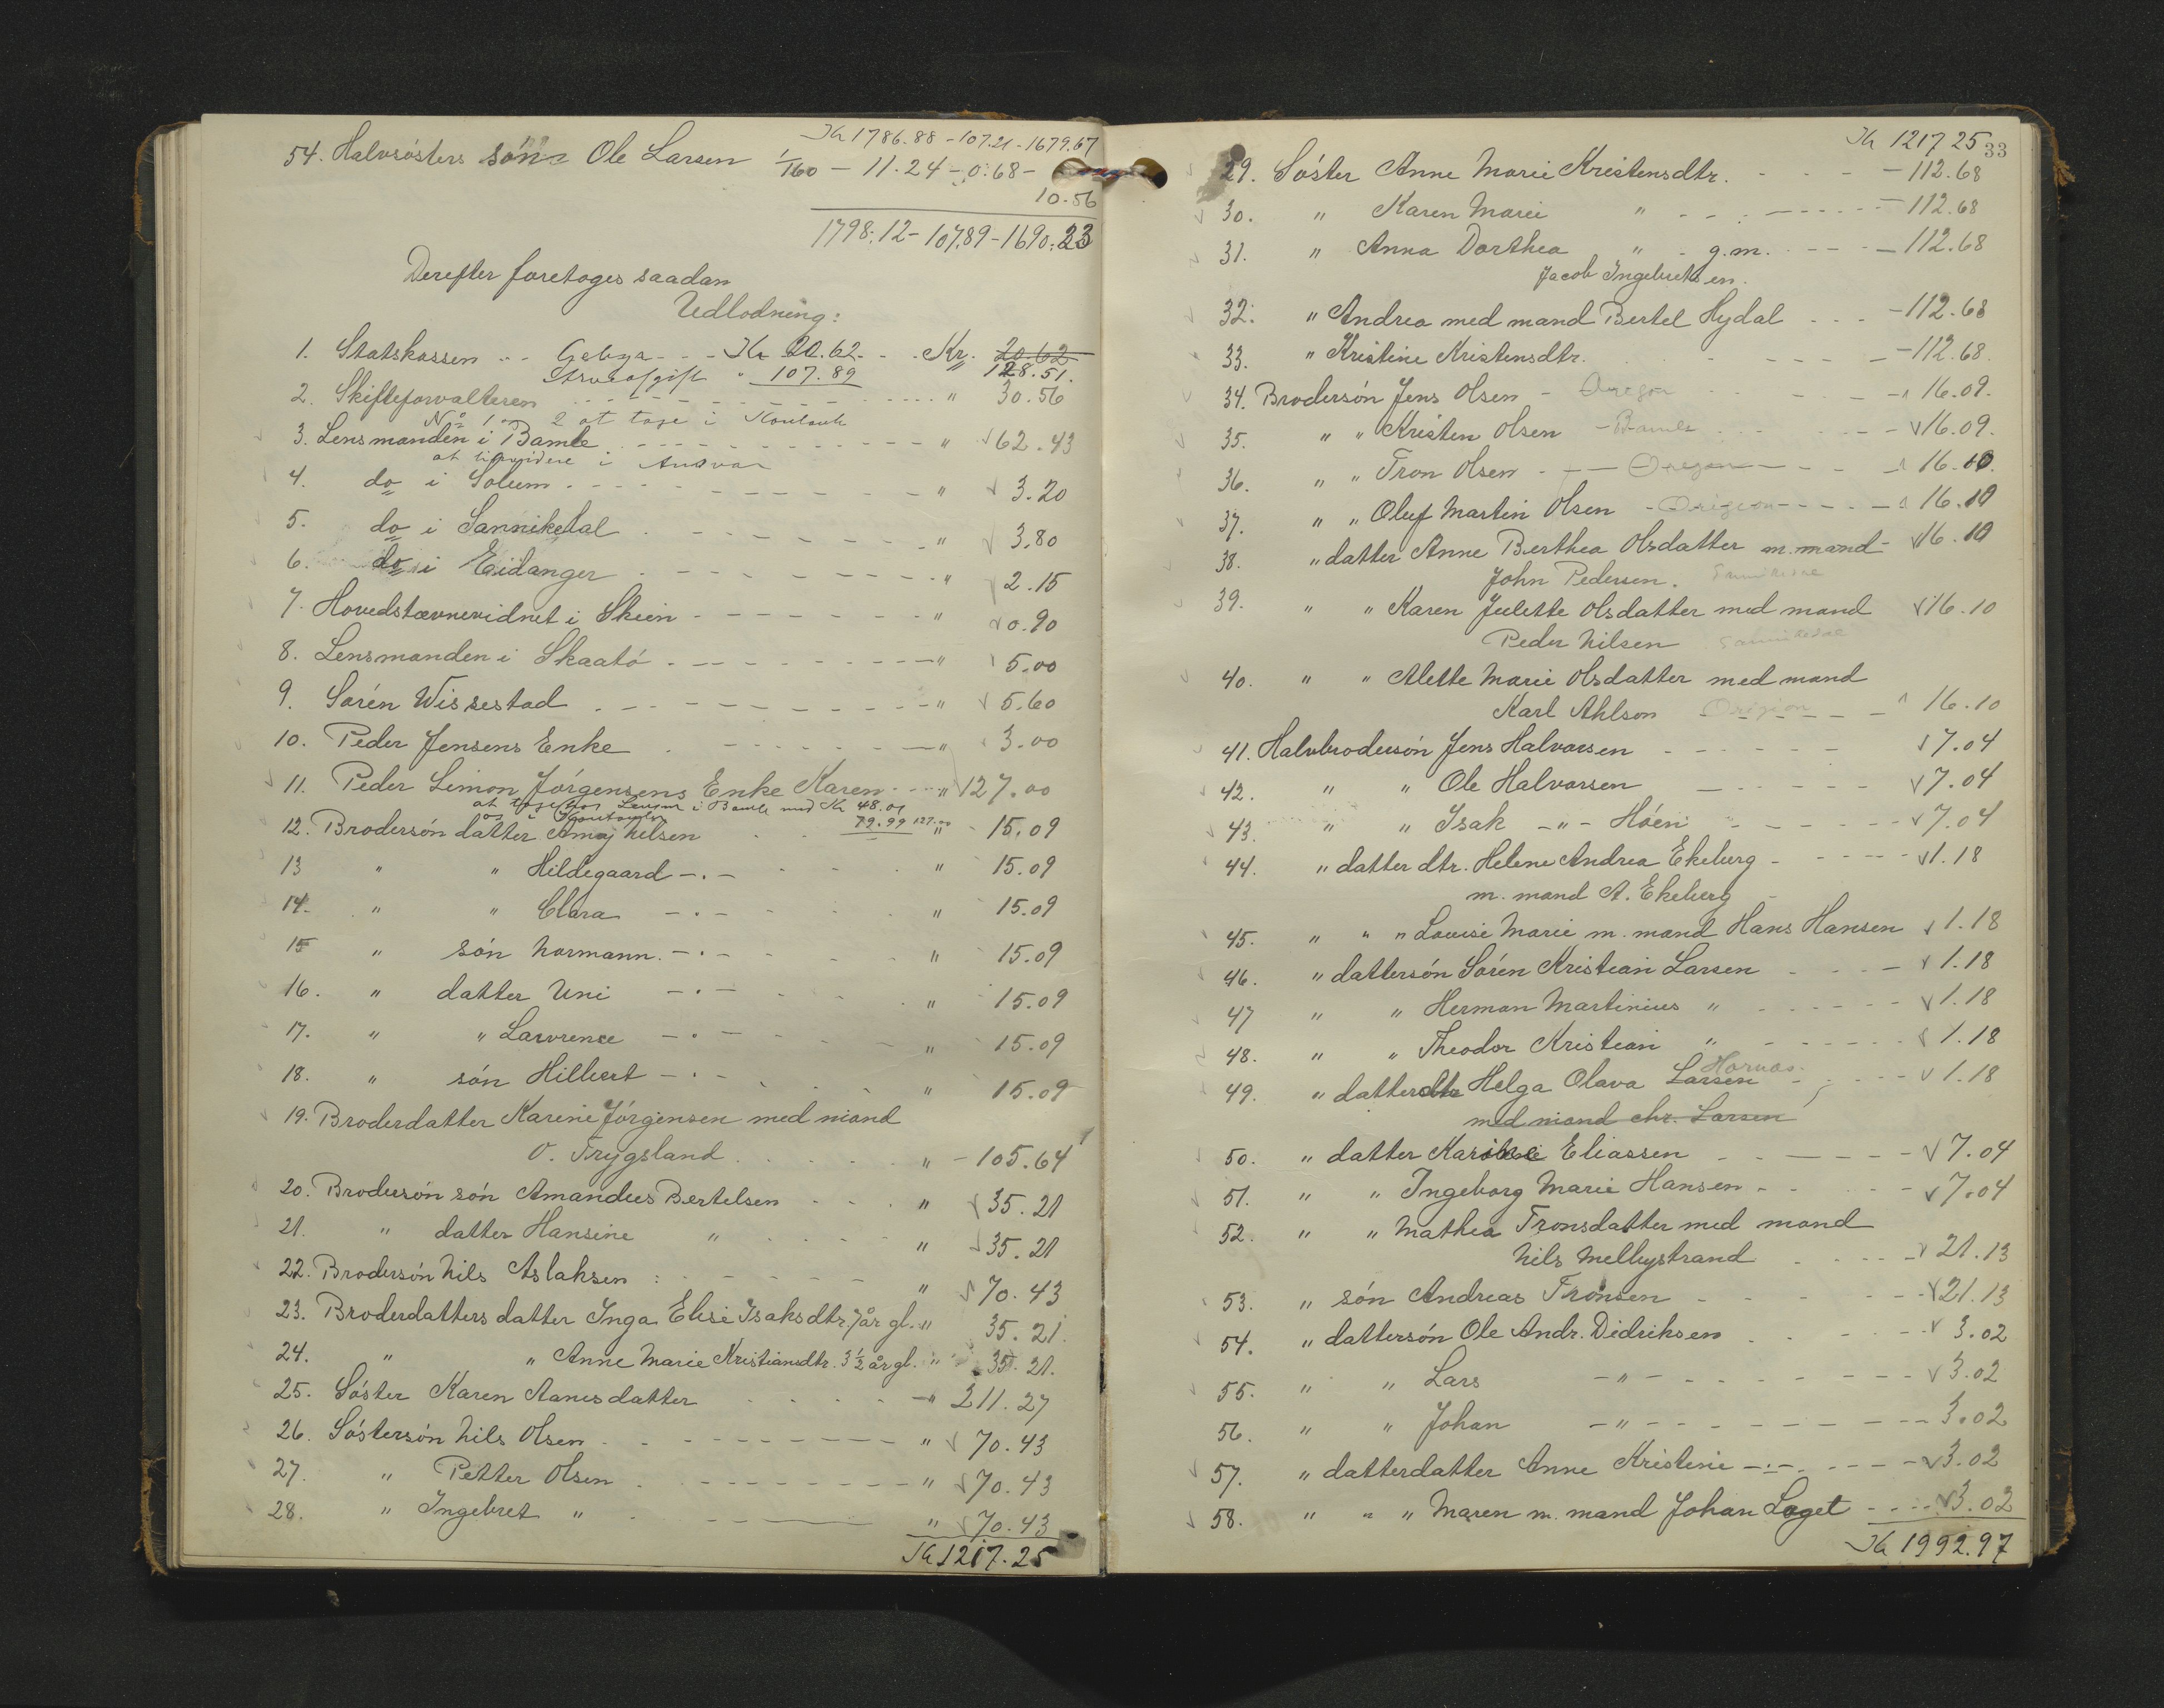 Kr 1786.88 - 107.21 - 1679.67
54. Halvsøsters søn Ole Larsen 1/160 - 11.24 - 0.68 -
10.56
1798.12 - 107.89 - 1690.23
Derefter foretoges saadan
Udlodning:
1. Statskassen Gebyr Kr 20.62 Kr. 20.62
Arveafgift " 107.89 " 128.51.
2. Skifteforvalteren " 30.56
No 1 og 2 at tage i Kontant
3. Lensmanden i Bamle " 62.43
at liqvidere i Ansvar
4. do i Solum " 3.20
5. do i Sannikedal " 3.80
6. do i Eidanger " 2.15
7. Hovedstævnevidnet i Skien " 0.90
8. Lensmanden i Skaatø " 5.00
9. Sørén Wissestad " 5.60
10. Peder Jensens Enke " 3.00
11. Peder Simon Jørgensens Enke Karen " 127.00
at tage hos Lensm i Bamle med Kr 48.01
og i Kontanter 79.99 127.00
12. Brodersøn datter Amaj Nelsen " 15.09
13 " " Hildegaard -"- " 15.09
14. " " Clara -"- " 15.09
15 " søn Normann. -"- " 15.09
16. " datter Uni -"- " 15.09
17. " " Lawrence -"- " 15.09
18. " søn Hilbert -"- " 15.09
19. Broderdatter Karine Jørgensen med mand
O. Trygsland " 105.64
20. Brodersøn søn Amandus Bertelsen " 35.21
21. " datter Hansine " " 35.21
22. Brodersøn Nils Aslaksen " 70.43
23. Broderdatters datter Inga Elise Isaksdtr. 7 år gl. " 35.21.
24. " " Anne Marie Kristiansdtr. 3 1/2 år gl. " 35.21.
25. Søster Karen Aanesdatter " 211.27
26. Søstersøn Nils Olsen " 70.43
27. " Petter Olsen " 70.43
28. " Ingebret " " 70.43
Kr 1217.25
Kr 1217 25 33
29. Søster Anne Marie Kristensdtr. 112.68
30. " Karen Marie " 112.68
31. " Anna Dorthea " g.m. 112.68
Jacob Ingebretsen.
32. " Andrea med mand Bertel Hydal 112.68
33. " Kristine Kristensdtr. 112.68.
34. Brodersøn Jens Olsen - Oregon 16.09.
35. " " Kristen Olsen - Bamle 16.09.
36. " " Tron Olsen - Oregon 16.10.
37. " " Oluf Martin Olsen - Origion 16.10
38. " datter Anne Berthea Olsdatter m. mand 16.10
John Pedersen. Sannikedal
39. " " Karen Julette Olsdatter med mand 16.10
Peder Nilsen Sannikedal
40. " " Alette Marie Olsdatter med mand
Karl Ahlson Origion 16.10
41. Halvbrodersøn Jens Halvorsen 7.04
42. " " Ole Halvorsen 7.04
43. " " Isak -"- Høen 7.04
44. " datter dtr. Helene Andrea Ekeberg 1.18
m. mand A. Ekeberg
45. " " " Lovise Marie m. mand Hans Hansen 1.18
46. " dattersøn Søren Kristian Larsen 1.18
47 " " Herman Martinius " 1.18
48. " " Theodor Kristian " 1.18
49. " datterdtr Helga Olava Larsen 1.18
med mand chr. Larsen
50. " datter Karoline Eliassen 7.04
51. " " Ingeborg Marie Hansen 7.04
52. " " Mathea Tronsdatter med mand
Nils Melbystrand 21.13
53. " søn Andreas Tronsen 21.13
54. " dattersøn Ole Andr. Didriksen 3.02
55. " " Lars -"- 3.02
56. " " Johan -"- 3.02
57. " datterdatter Anne Kristine -"- 3.02
58. " " " Maren m. mand Johan Loget 3.02
Kr 1992.97